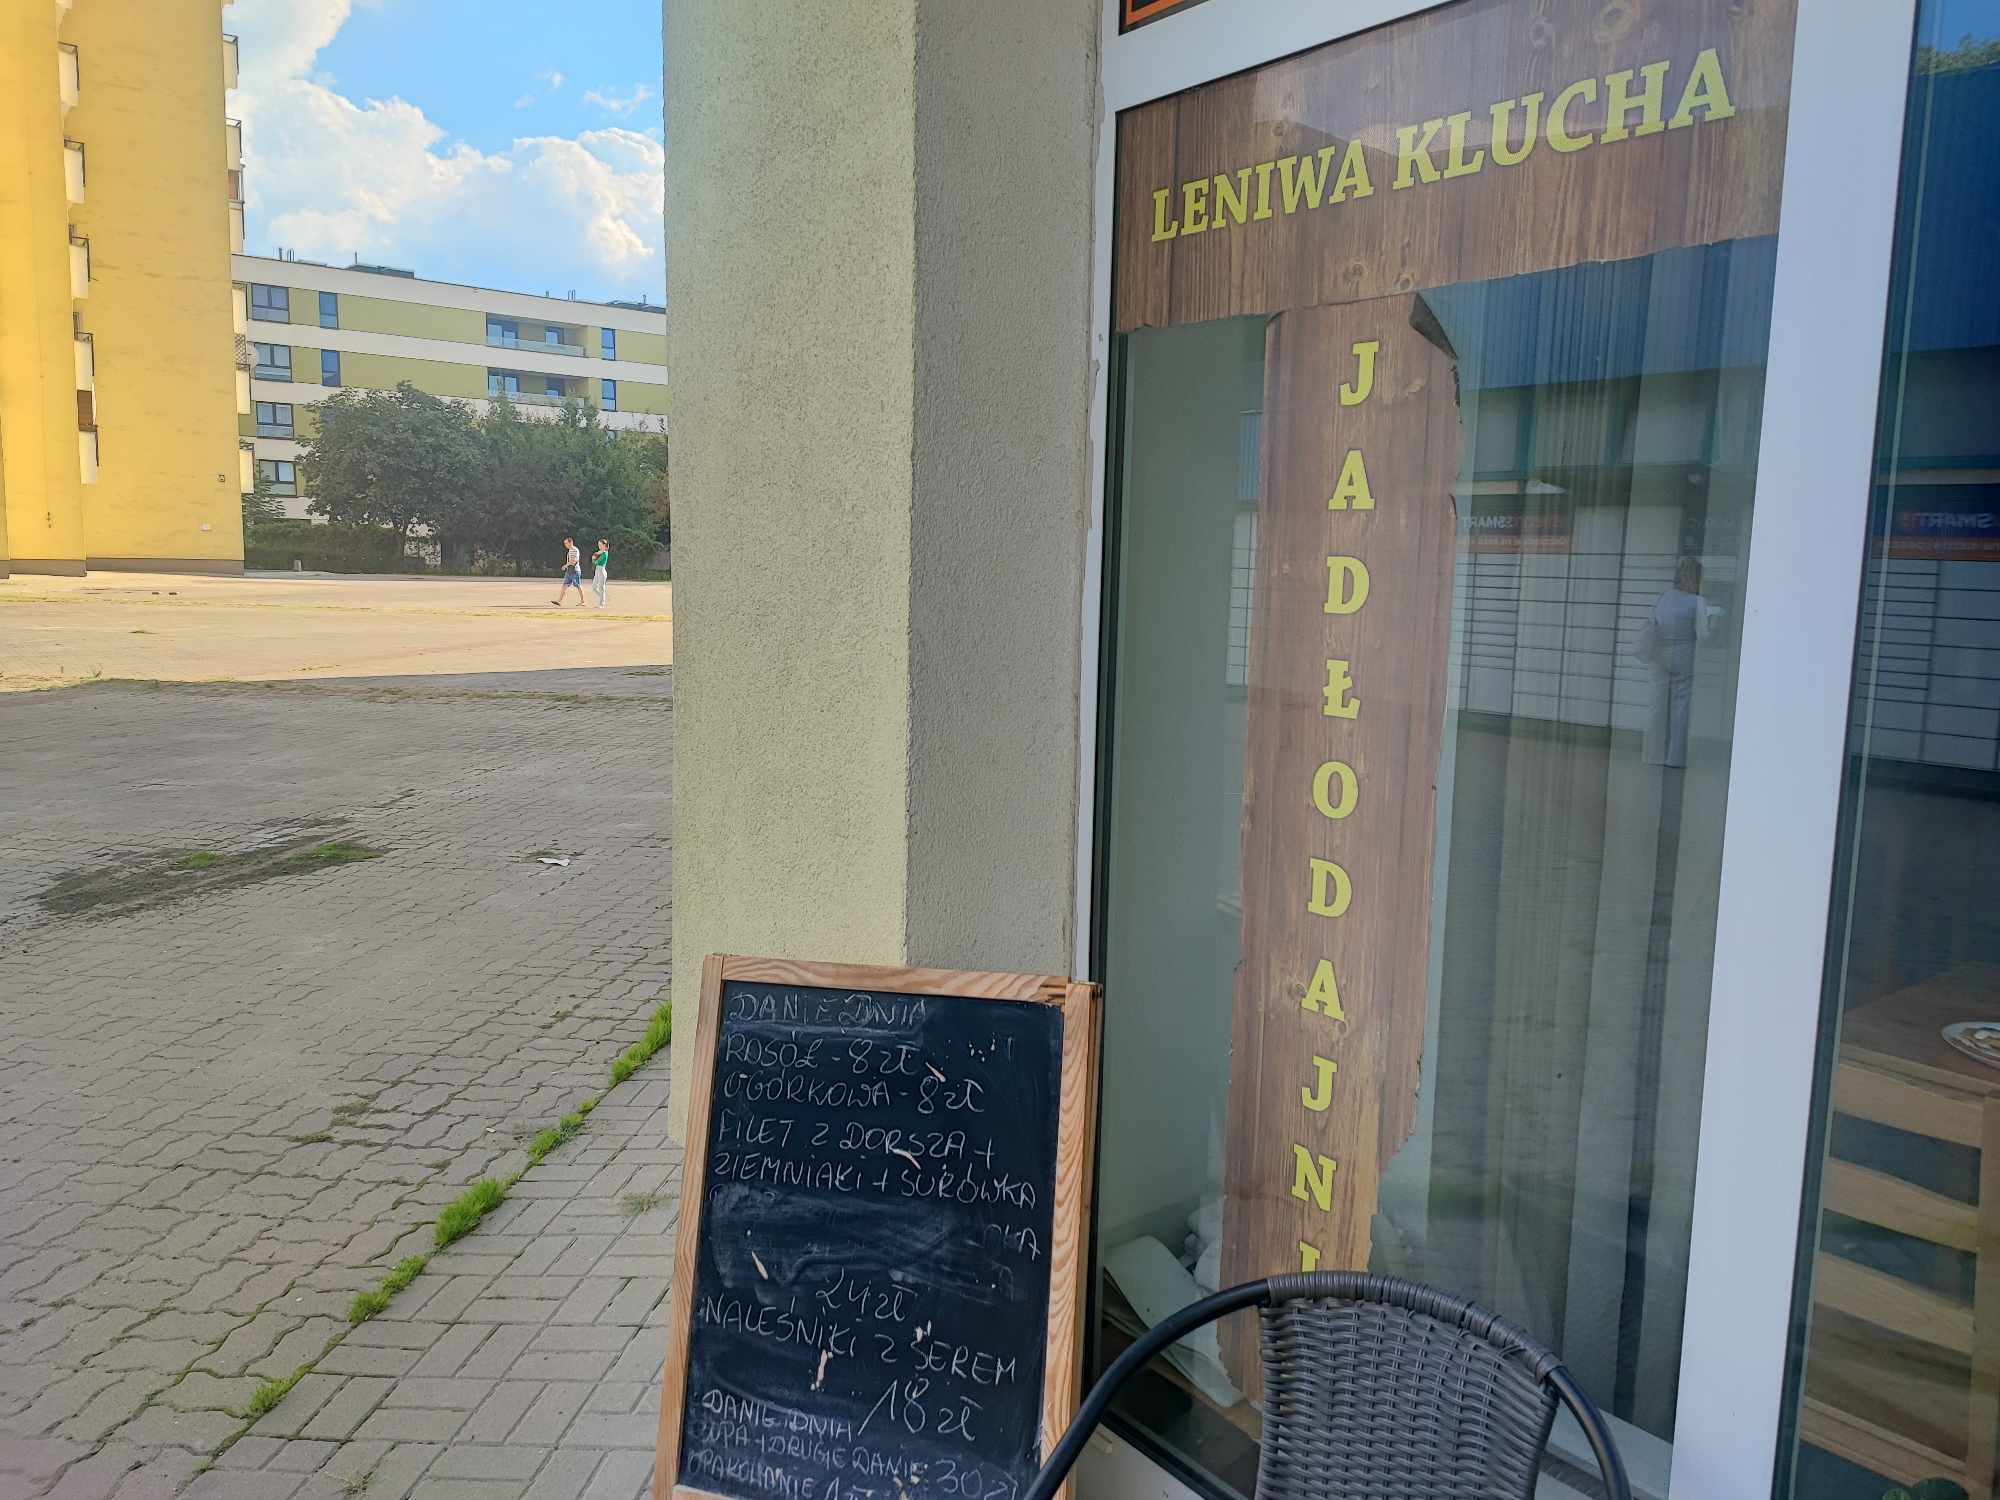 LENIWA KLUCHA
JADŁODAJNI
DANIE DNIA
ROSÓŁ - 8 zł
OGÓRKOWA - 8 zł
FILET Z DORSZA +
ZIEMNIAKI + SURÓWKA
24 zł
NALEŚNIKI Z SEREM
18 zł
DANIE DNIA
ZUPA + DRUGIE DANIE 30 zł
OPAKOWANIE 1 zł